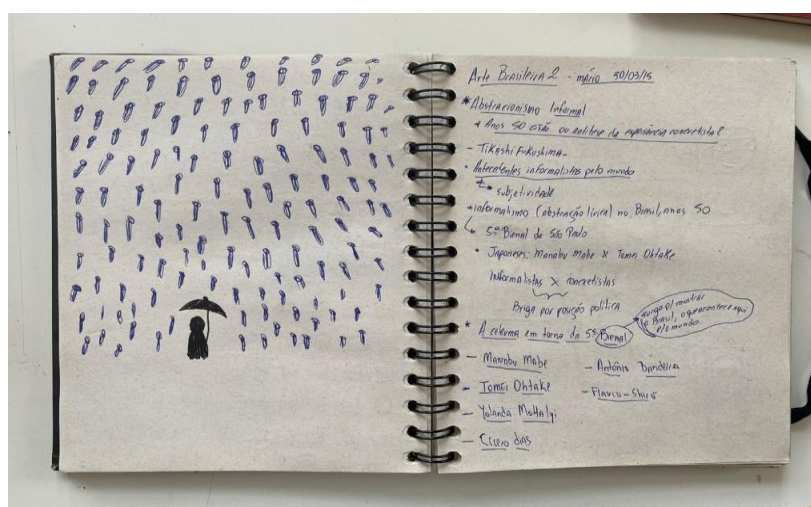 Arte Brasileira 2 - Mário 30/03/15
* Abstracionismo Informal
* Anos 50 cisão ou antítese da experiência concretista?
- Tikashi Fukushima -
* Antecedentes informalistas pelo mundo
* subjetividade
* informalismo (abstração lírica) no Brasil, anos 50
5ª Bienal de São Paulo
* Japoneses: Manabu Mabe x Tomei Ohtake
Informalistas x concretistas
Briga por posição política
* A celeuma em torno da 5ª Bienal
surge p/ mostrar
o Brasil, o que acontece aqui
p/ o mundo.
- Manabu Mabe
- Antônio Bandeira
- Tomei Ohtake
- Flavio-Shiró
- Yolanda Mohalyi
- Cícero dias